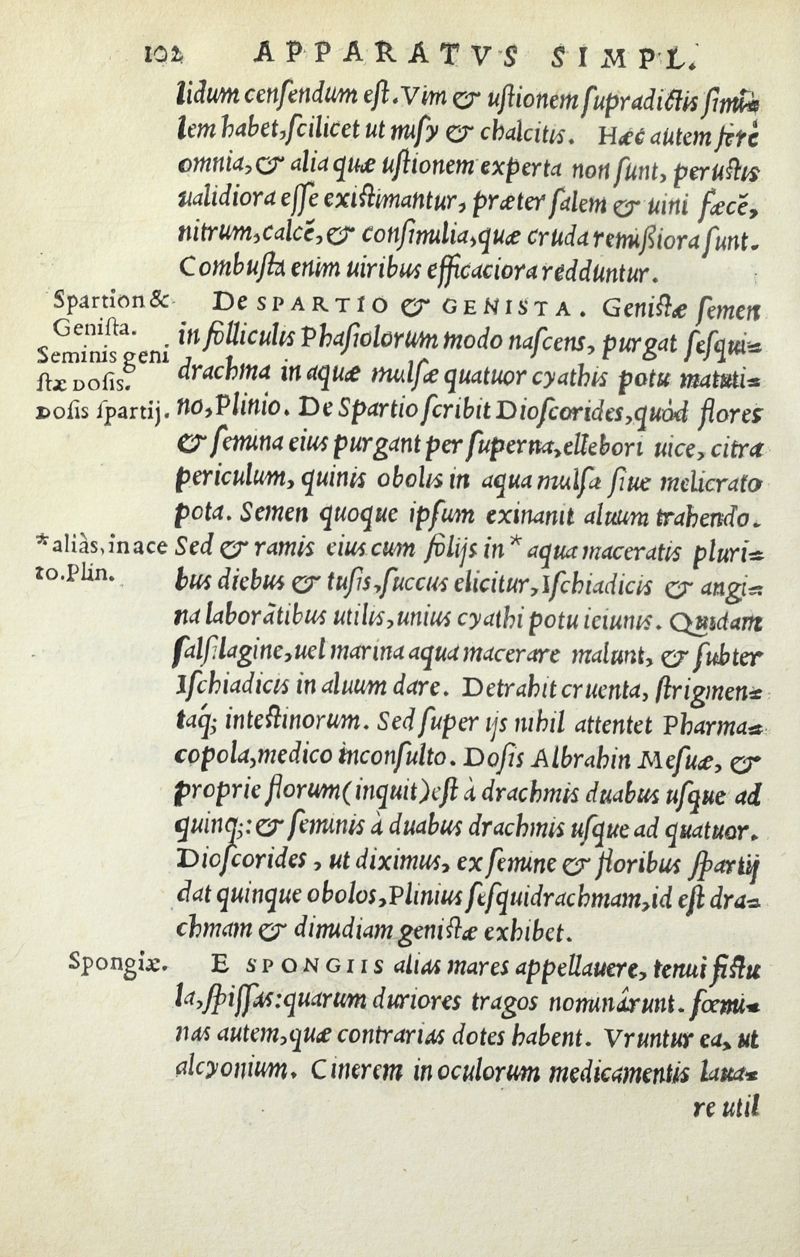 102 APPARATVS SIMPL.
lidum censendum est. Vim & ustionem supradictis simi-
lem habet, scilicet ut misy & chalcitis. Haec autem ferè
omnia, & alia quæ ustionem experta non sunt, perustis
ualidiora esse existimantur, præter salem & uini fæcē,
nitrum, calcē, & consimilia, quæ cruda remißiora sunt.
Combusta enim uiribus efficaciora redduntur.
Spartion &
Genista.
Seminis geni
stæ Dosis.
Dosis spartij.
De SPARTIO & GENISTA. Genistæ semen
in folliculis Phasiolorum modo nascens, purgat sesqui-
drachma in aquæ mulsæ quatuor cyathis potu matuti-
no, Plinio. De Spartio scribit Dioscorides, quòd flores
& semina eius purgant per superna, ellebori uice, citra
periculum, quinis obolis in aqua mulsa siue melicrato
pota. Semen quoque ipsum exinanit aluum trahendo.
*aliàs, in ace
to. Plin.
Sed & ramis eius cum folijs in * aqua maceratis pluri-
bus diebus & tusis, succus elicitur, Ischiadicis & angi-
na laborātibus utilis, unius cyathi potu ieiunis. Quidam
salsilagine, uel marina aqua macerare malunt, & subter
Ischiadicis in aluum dare. Detrahit cruenta, strigmen-
taq́; intestinorum. Sed super ijs nihil attentet Pharma-
copola, medico inconsulto. Dosis Albrahin Mesuæ, &
proprie florum (inquit) est à drachmis duabus usque ad
quinq;: & seminis à duabus drachmis usque ad quatuor.
Dioscorides, ut diximus, ex semine & floribus spartij
dat quinque obolos, Plinius sesquidrachmam, id est dra-
chmam & dimidiam genistæ exhibet.
Spongiæ.
E SPONGIIS alias mares appellauere, tenui fistu
la, spissas: quarum duriores tragos nominârunt. fœmi-
nas autem, quæ contrarias dotes habent. Vruntur ea, ut
alcyonium. Cinerem in oculorum medicamentis laua-
re util